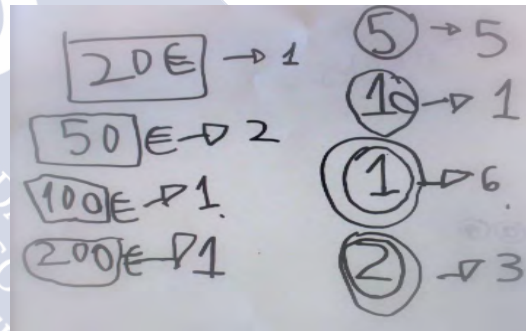 20€ → 1
50€ → 2
100€ → 1.
200€ → 1
5 → 5
10 → 1
1 → 6.
2 → 3